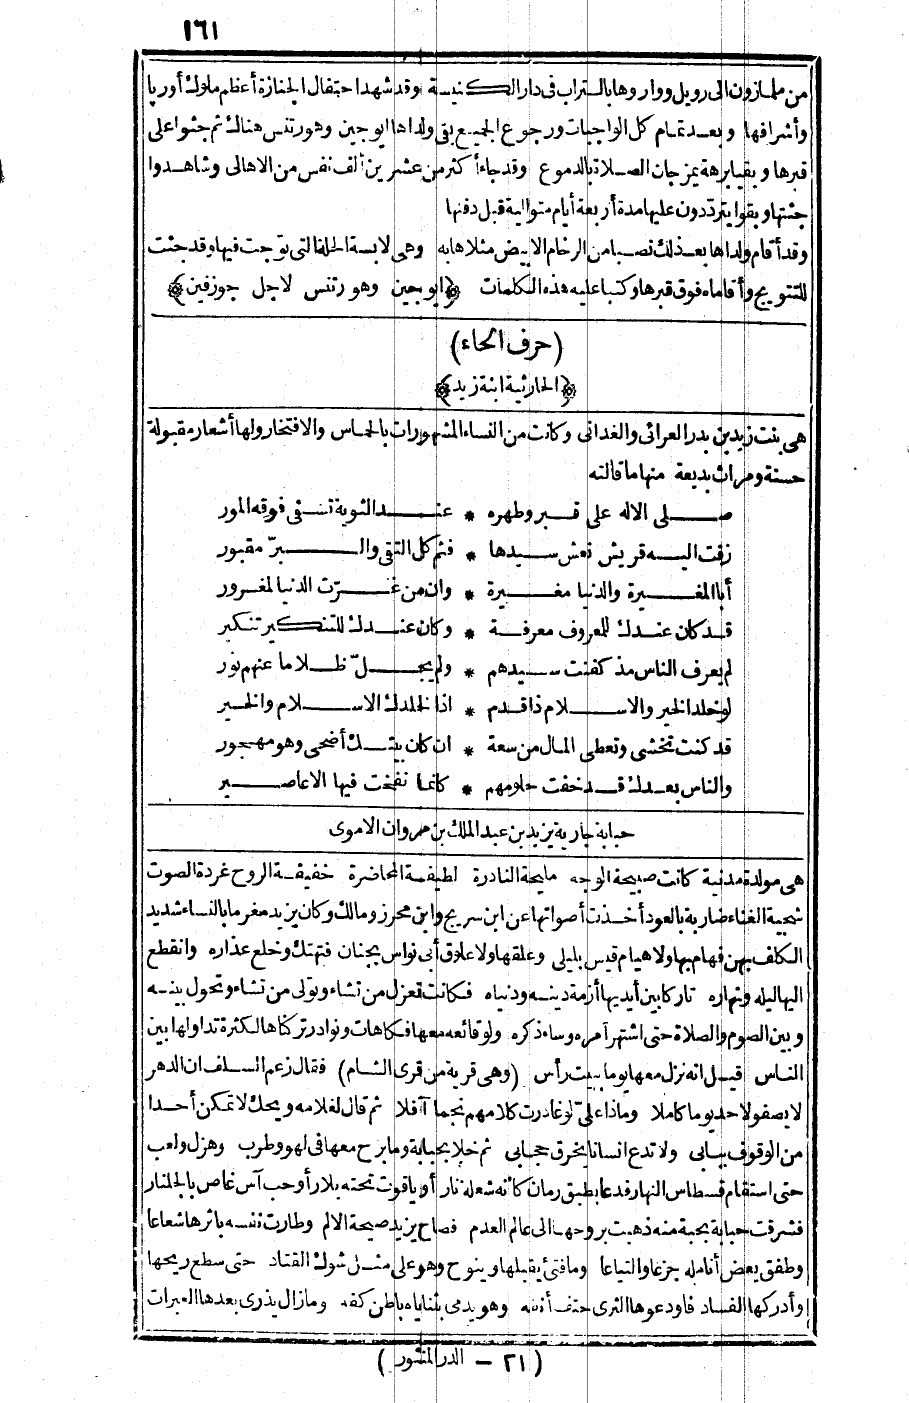 ١٦١
من ملمازون الى رويل وواروها بالتراب فى دار الكنيسة وقد شهدا احتفال الجنازة أعظم ملوك أوربا
وأشرافها وبعد تمام كل الواجبات ورجوع الجميع بقى ولداها ايوجين وهورتنس هناك ثم جثوا على
قبرها وبقيا برهة يمزجان الصلاة بالدموع وقد جاء أكثر من عشرين ألف نفس من الاهالى وشاهدوا
جثتها وبقوا يترددون عليها مدة أربعة أيام متوالية قبل دفنها
وقد أقام ولداها بعد ذلك نصبا من الرخام الابيض مثلاها به وهى لابسة الحلة التى توجت فيها وقد جثت
للتتويج وأقاماه فوق قبرها وكتبا عليه هذه الكلمات ﴿ايوجين وهورتنس لاجل جوزفين﴾
(حرف الحاء)
﴿الحارثية ابنة زيد﴾
هى بنت زيد بن بدر العرانى والغدانى وكانت من النساء المشهورات بالحماس والافتخار ولها أشعار مقبولة
حسنة ومراث بديعة منها ما قالته
صلى الاله على قبر وطهره * عند الثوية تسفى فوقه المور
زفت اليه قريش نعش سيدها * فثم كل التقى والبر مقبور
أبا المغيرة والدنيا مغيرة * وان من غرت الدنيا لمغرور
قد كان عندك للمعروف معرفة * وكان عندك للتنكير تنكير
لم يعرف الناس مذ كفنت سيدهم * ولم يجلّ ظلاما عنهم نور
لو خلد الخير والاسلام ذا قدم * اذا لخلدك الاسلام والخير
قد كنت تخشى وتعطى المال من سعة * ان كان بيتك أضحى وهو مهجور
والناس بعدك قد خفت حلومهم * كانما نفخت فيها الاعاصير
حبابة جارية يزيد بن عبد الملك بن مروان الاموى
هى مولدة مدنية كانت صبيحة الوجه مليحة النادرة لطيفة المحاضرة خفيفة الروح غردة الصوت
شجية الغناء ضاربة بالعود أخذت أصواتها عن ابن سريج وابن محرز ومالك وكان يزيد مغرما بالنساء شديد
الكلف بهن فهام بها ولا هيام قيس بليلى وعلقها ولا علاق أبى نواس بجنان فتهتك وخلع عذاره وانقطع
اليها ليله ونهاره تاركا بين أيديها أزمة دينه ودنياه فكانت تعزل من تشاء وتولى من تشاء وتحول بينه
وبين الصوم والصلاة حتى اشتهر أمره وساء ذكره ولوقائعه معها فكاهات ونوادر تركناها لكثرة تداولها بين
الناس قيل انه نزل معها يوما ببيت رأس (وهى قرية من قرى الشام) فقال زعم السلف ان الدهر
لا يصفو لاحد يوما كاملا وماذا علىّ لو غادرت كلامهم نجما آفلا ثم قال لغلامه ويحك لا تمكن أحدا
من الوقوف ببابى ولا تدع انسانا يخرق حجابى ثم خلا بحبابة وما برح معها فى لهو وطرب وهزل ولعب
حتى استقام قسطاس النهار فدعا بطبق رمان كانه شعلة نار أو ياقوت تحته بلار أو حب آس غاص بالجلنار
فشرقت حبابة بحبة منه ذهبت بروحها الى عالم العدم فصاح يزيد صيحة الالم وطارت نفسه باثرها شعاعا
وطفق يعض أنامله جزعا والتياعا وما فتئ يقبلها وينوح وهو على مثل شوك القتاد حتى سطع ريحها
وأدركها الفساد فاودعوها الثرى حتف أنفه وهو يدمى بثناياه باطن كفه وما زال يذرى بعدها العبرات
(٢١ - الدر المنثور)